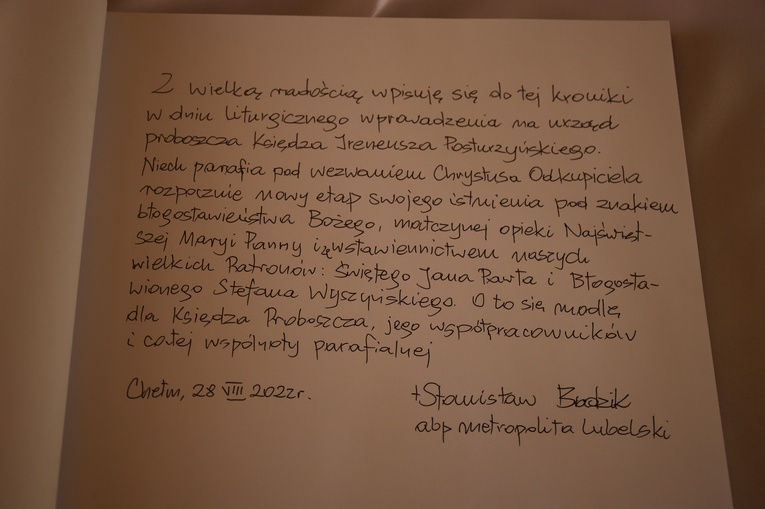 Z wielką radością wpisuję się do tej kroniki
w dniu liturgicznego wprowadzenia na urząd
proboszcza Księdza Ireneusza Posturzyńskiego.
Niech parafia pod wezwaniem Chrystusa Odkupiciela
rozpocznie nowy etap swojego istnienia pod znakiem
błogosławieństwa Bożego, matczynej opieki Najświęt-
szej Maryi Panny i z wstawiennictwem naszych
wielkich Patronów: Świętego Jana Pawła i Błogosła-
wionego Stefana Wyszyńskiego. O to się modlę
dla Księdza Proboszcza, jego współpracowników
i całej wspólnoty parafialnej
Chełm, 28 VIII 2022 r.
+Stanisław Budzik
abp metropolita lubelski